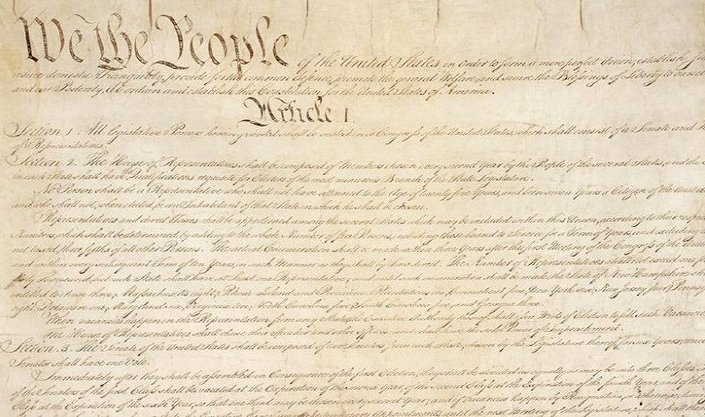 We the People of the United States, in Order to form a more perfect Union, establish
insure domestic Tranquility, provide for the common defence, promote the general Welfare, and secure the Blessings of Liberty to
and our Posterity, do ordain and establish this Constitution for the United States of America.
Article. I.
Section. 1. All legislative Powers herein granted shall be vested in a Congress of the United States, which shall consist of a Senate and
of Representatives.
Section. 2. The House of Representatives shall be composed of Members chosen every second Year by the People of the several States, and the
in each State shall have the Qualifications requisite for Electors of the most numerous Branch of the State Legislature.
No Person shall be a Representative who shall not have attained to the Age of twenty five Years, and been seven Years a Citizen of the United
and who shall not, when elected, be an Inhabitant of that State in which he shall be chosen.
Representatives and direct Taxes shall be apportioned among the several States which may be included within this Union, according to their respective
Numbers, which shall be determined by adding to the whole Number of free Persons, including those bound to Service for a Term of Years, and excluding
not taxed, three fifths of all other Persons. The actual Enumeration shall be made within three Years after the first Meeting of the Congress of the
and within every subsequent Term of ten Years, in such Manner as they shall by Law direct. The Number of Representatives shall not exceed one for
thirty Thousand, but each State shall have at Least one Representative; and until such enumeration shall be made, the State of New Hampshire shall
entitled to chuse three, Massachusetts eight, Rhode Island and Providence Plantations one, Connecticut five, New York six, New Jersey four,
eight, Delaware one, Maryland six, Virginia ten, North Carolina five, South Carolina five, and Georgia three.
When vacancies happen in the Representation from any State, the Executive Authority thereof shall issue Writs of Election to fill such Vacancies.
The House of Representatives shall chuse their Speaker and other Officers; and shall have the sole Power of Impeachment.
Section. 3. The Senate of the United States shall be composed of two Senators from each State, chosen by the Legislature thereof, for six Years; and
Senator shall have one Vote.
Immediately after they shall be assembled in Consequence of the first Election, they shall be divided as equally as may be into three Classes.
of the Senators of the first Class shall be vacated at the Expiration of the second Year, of the second Class at the Expiration of the fourth Year, and of the
Class at the Expiration of the sixth Year, so that one third may be chosen every second Year; and if Vacancies happen by Resignation, or otherwise,
Appointments until the next Meeting of the Legislature,